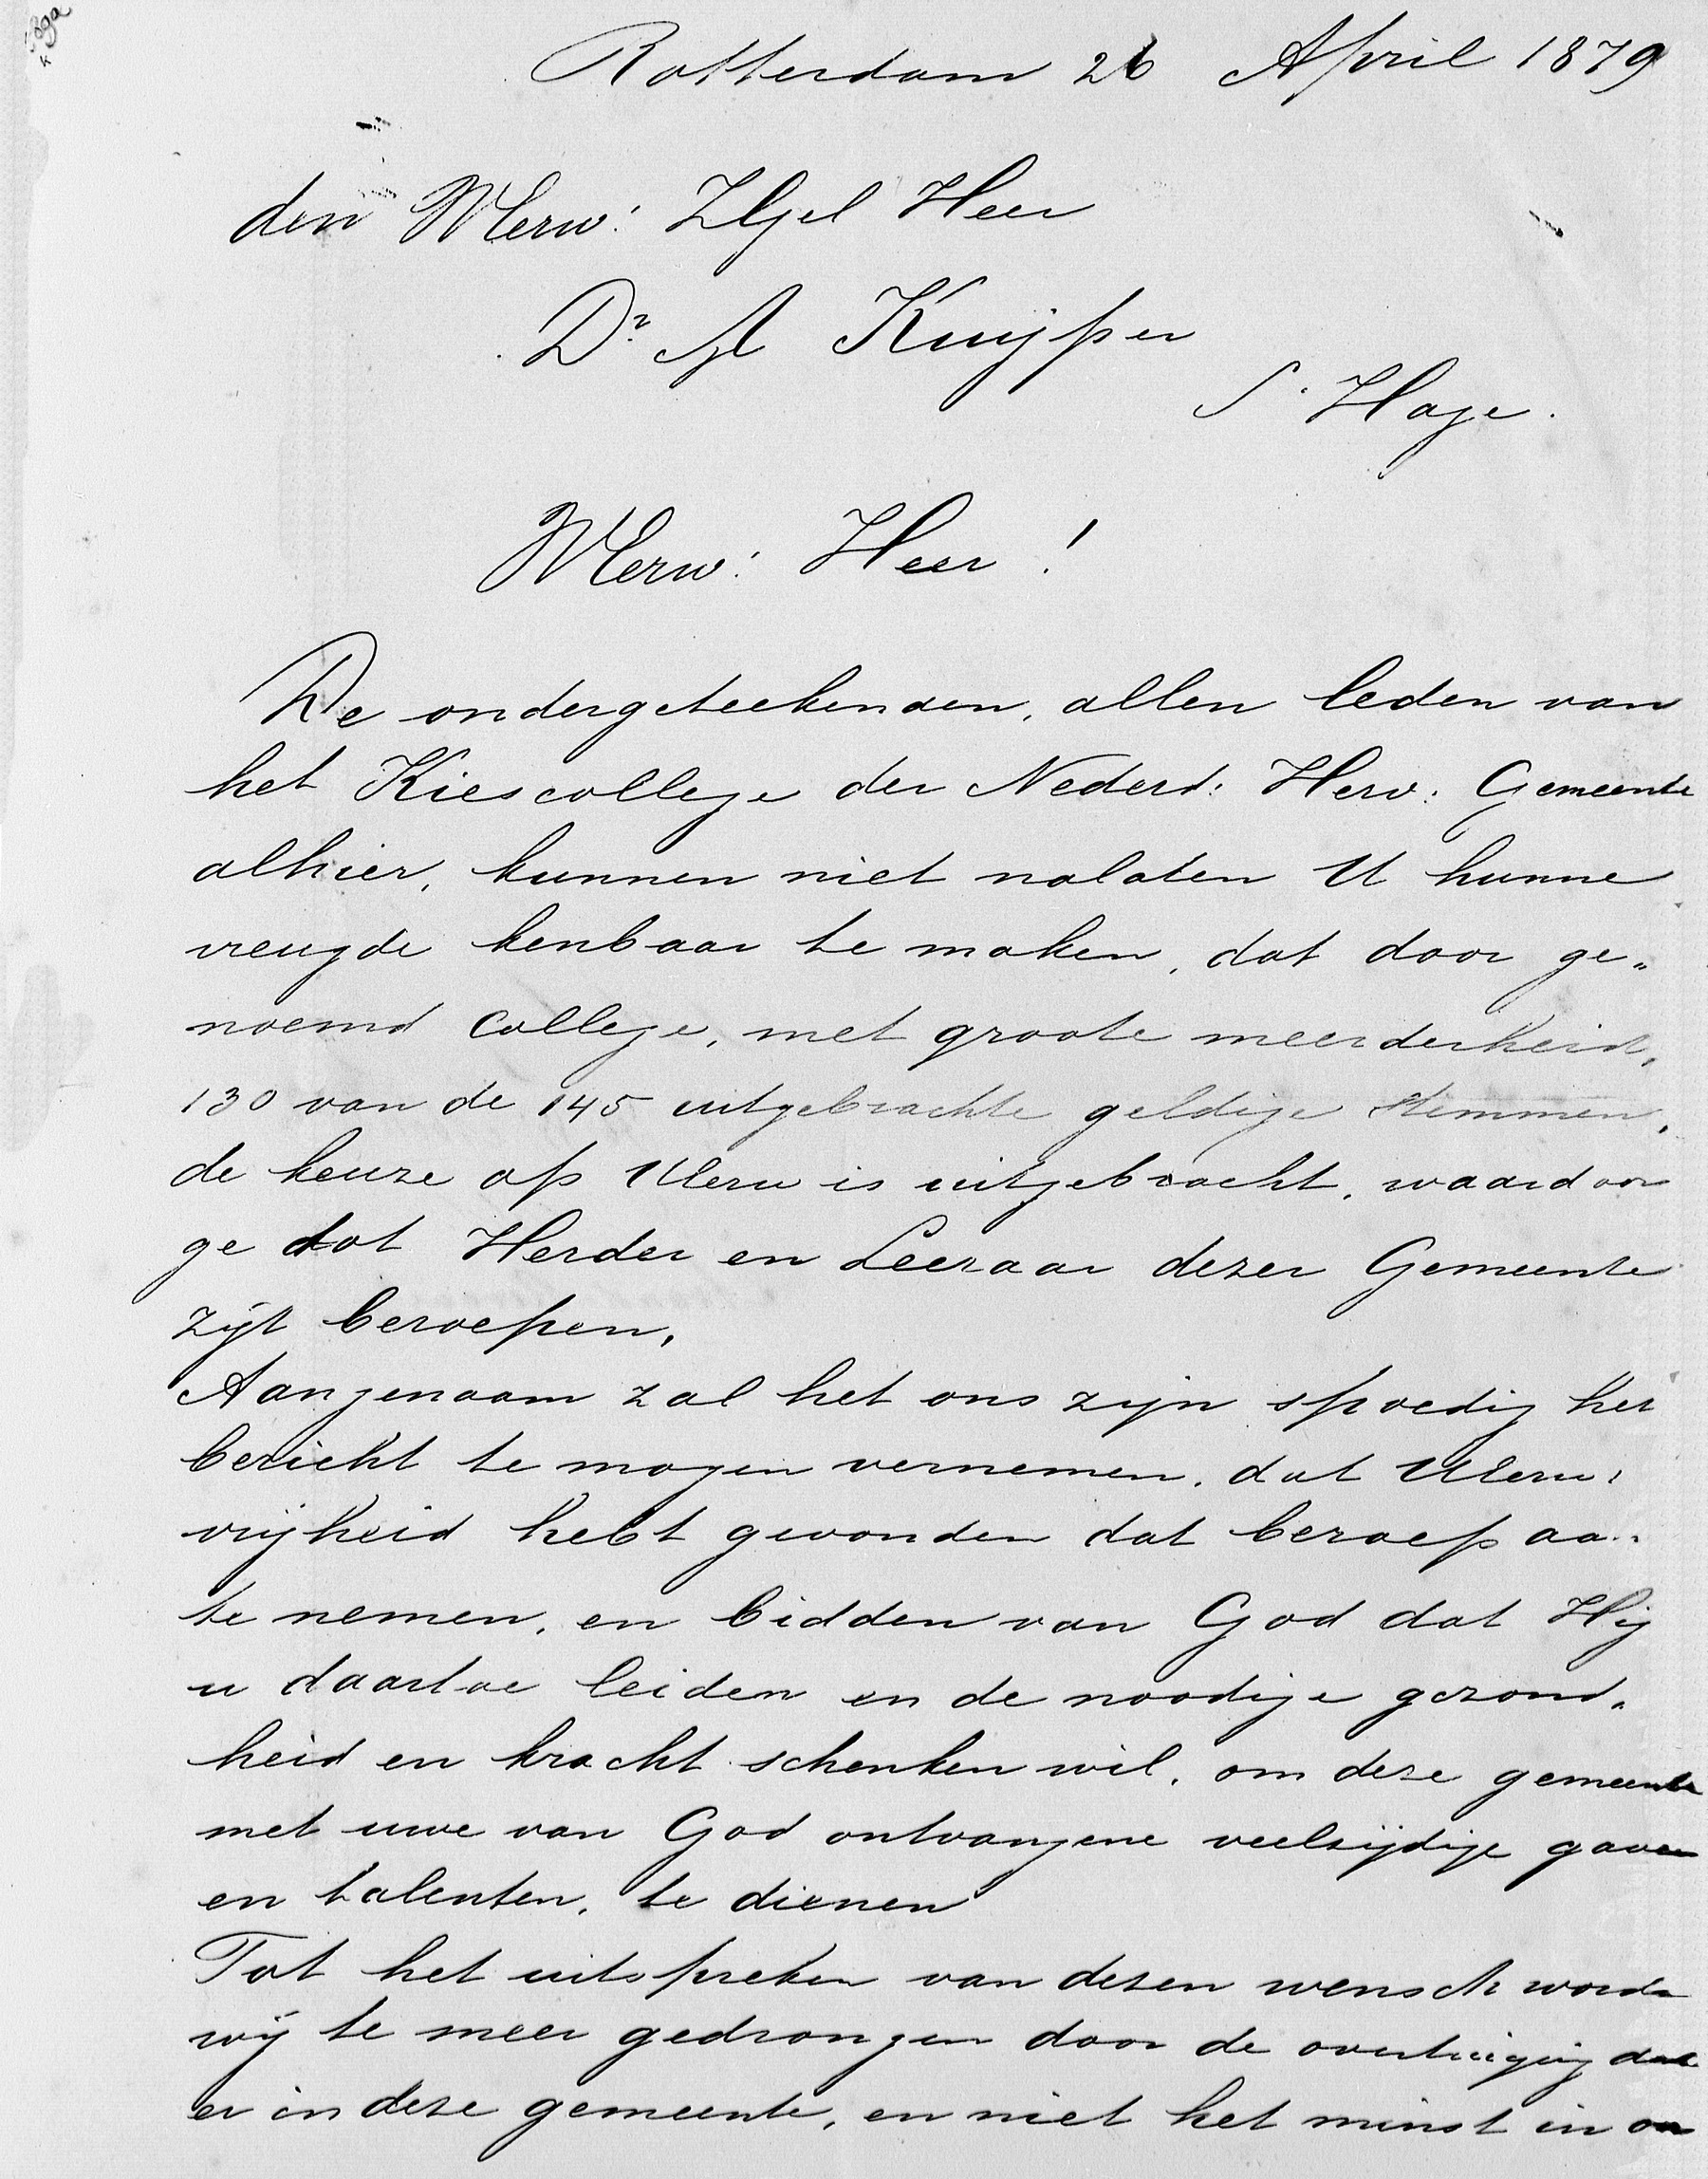 Rotterdam 26 April 1879
den WEerw: ZGel Heer
Dr A Kuijper
S. Hage.
WEerw: Heer!
De ondergeteekenden, allen leden van
het Kiescollege der Nederd: Herv: Gemeente
alhier, kunnen niet nalaten U hunne
vreugde kenbaar te maken, dat door ge„
noemd College, met groote meerderheid,
130 van de 145 uitgebrachte geldige stemmen,
de keuze op UEerw is uitgebracht, waardoor
ge tot Herder en Leeraar dezer Gemeente
zijt beroepen.
Aangenaam zal het ons zijn spoedig het
bericht te mogen vernemen, dat UEerw:
vrijheid hebt gevonden dat beroep aan
te nemen, en bidden van God dat Hij
u daartoe leiden en de noodige gezond„
heid en kracht schenken wil, om deze gemeente
met uwe van God ontvangene veelzijdige gaven
en talenten, te dienen
Tot het uitspreken van dezen wensch worden
wij te meer gedrongen door de overtuiging dat
er in deze gemeente, en niet het minst in on